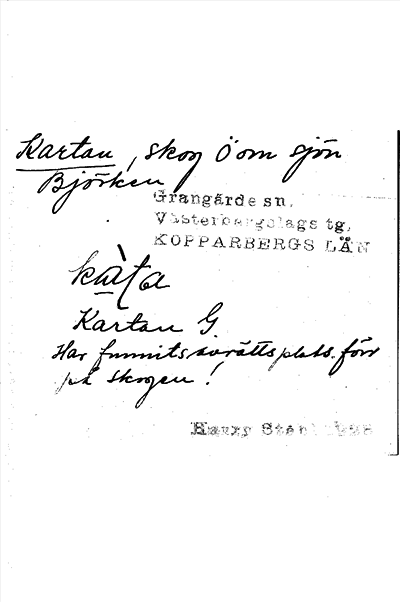 Kartan, skog Ö om sjön
Björken
Grangärde sn.
Västerbergslags tg.
KOPPARBERGS LÄN
kàta
Kartan G.
Har funnits avrättsplats förr
på skogen!
Harry Ståhl